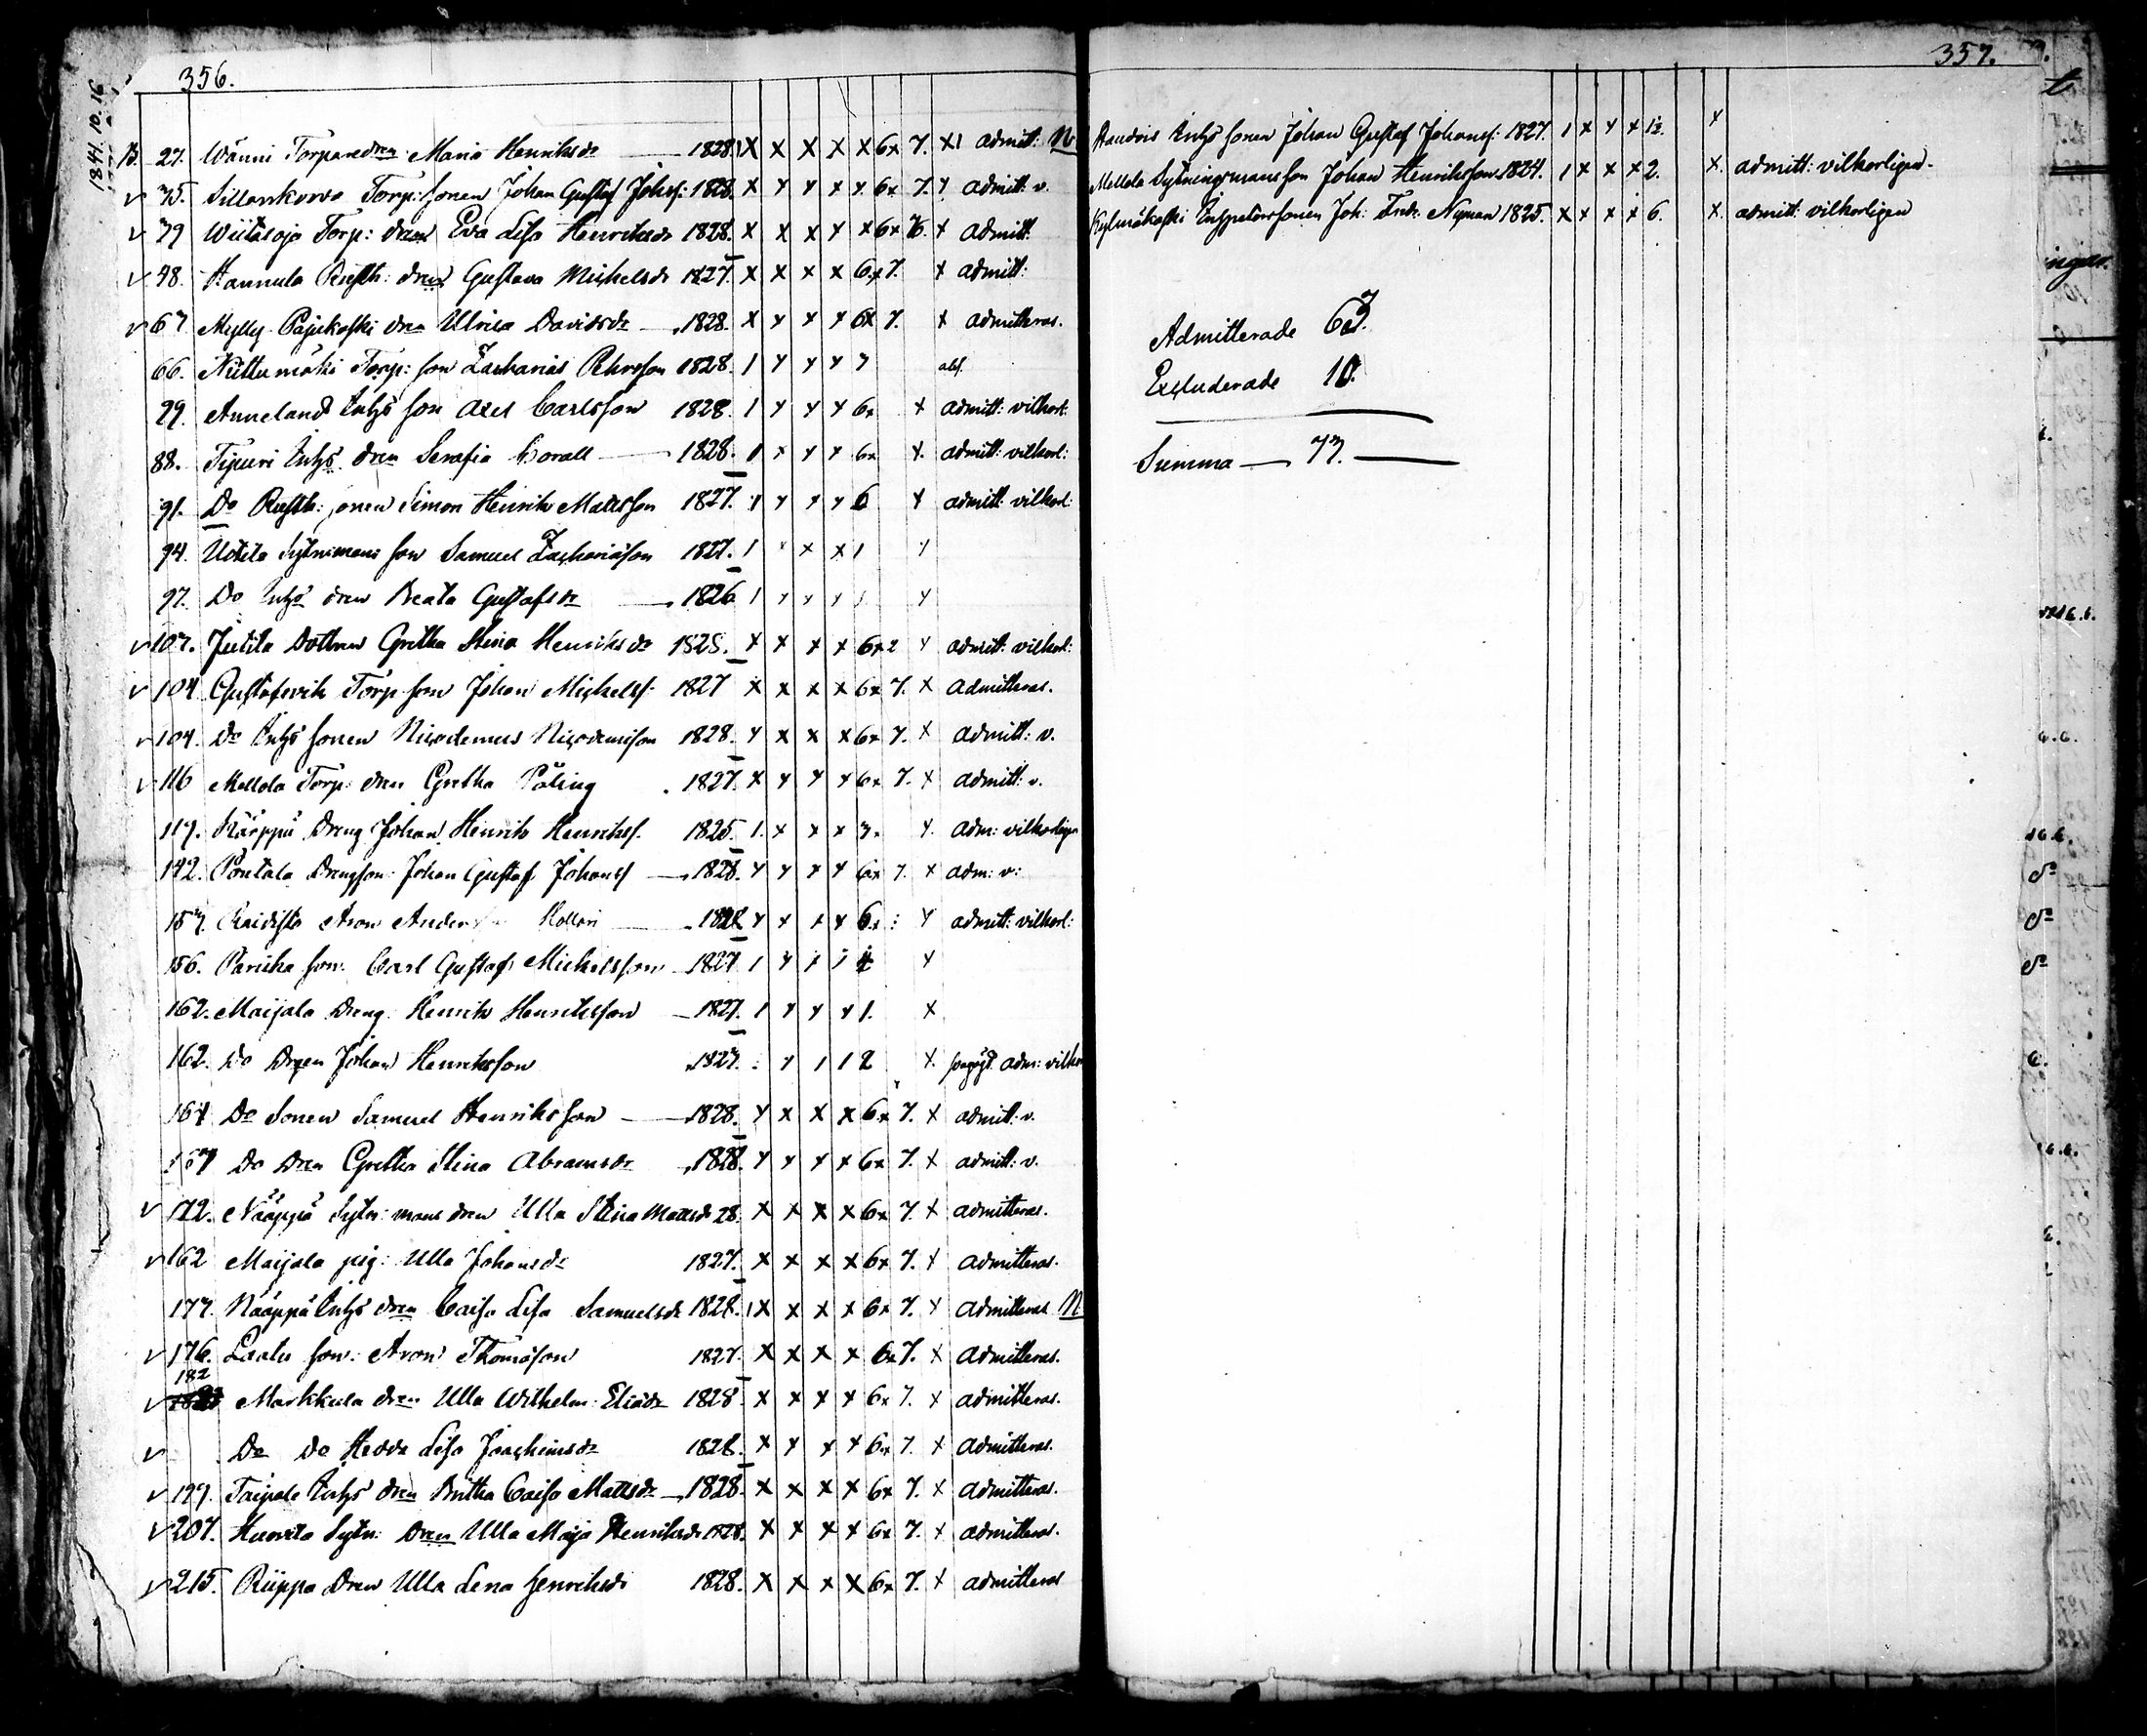 356.
1841. 10. 16
27. Wänni Torparedren Maria Henriksdr 1828. X X X X X 6x 7. X admitt: N
v 35. Sillankorva Torp: sonen Johan Gustaf Johss: 1828. x x x x x 6x 7. x admitt: v.
v 39 Wiitasoja Torp: dren Eva Lisa Henriksdr 1828. x x x x x 6x x admitt.
v 48. Hannula Rusth: dren Gustava Michelsdr 1827. x x x x 6x 7. x admitt:
v 67 Mylly Pajukoski dren Ulrica Davidsdr 1828. x x x x 6x 7. x admitteras.
66. Niittumäki Torp: son Zacharias Pehrsson 1828. 1 x x x 3 abs.
29. Anneland Inhs son Axel Carlsson 1828. 1 x x x 6x x admitt: vilkorl:
88. Tijuri Inhs dren Serafia Corall 1828. x x x 6x x. admitt: vilkorl:
91. Do Rusth: sonen Simon Henrik Mattsson 1827. 1 x x x 6 x admitt: vilkorl:
94. Uotila Sytnimans son Samuel Zachariasson 1827. 1 x x x 1 x
97. Do Inhs dren Beata Gustafsdr 1826 1 x x x 1 x
v 107. Jutila Dottren Gretha Stina Henriksdr 1828. x x x x 6x 2 x admitt: vilkorl:
v 104 Gustafsvik Torp son Johan Michelss: 1827 x x x x 6x 7. x admitteras.
v 104. Do Inhs sonen Nicodemus Nicodemisson 1828. x x x x 6x 7. x admitt: v.
v 116 Mellola Torp: dren Gretha Påling 1827. x x x x 6x 7. x admitt: v.
117. Kärppä Dreng Johan Henrik Henrikss. 1825. 1. x x x 3x x. adm: vilkorligen
142. Pöntälä Drengson Johan Gustaf Johanss 1828. x x x x 6x 7. x adm: v:
157. Raidisto Aron Ander Kollari 1828 x x x x 6x x admitt: vilkorl:
156. Parikka son: Carl Gustaf Michelsson 1827 1 x 1 x
162. Maijala Dreng Henrik Henriksson 1827. 1 x x x 1. x
162. Do Drgen Johan Henriksson 1827. x 1 1 2 x. adm: vilkor
164 Do Sonen Samuel Henriksson 1828. x x x x 6x 7. x admitt: v.
Do Dren Gretha Stina Abramsdr 1828. x x x x 6x 7. x admitt: v.
v 172. Nääppä Sytn: mans dren Ulla Stina Mattsdr 28. x x x x 6x 7. x admitteras.
v 162 Maijala pig: Ulla Johansdr 1827. x x x x 6x 7. x admitteras.
177. Nääppä Inhs dren Caisa Lisa Samuelsdr 1828. x x x x 6x 7. x admitteras N
v 176. Laalu son: Aron Thomasson 1827. x x x x 6x 7. x admitteras.
v 182 Markkula dren Ulla Wilhelm: Eliædr 1828 x x x x 6x 7. x admitteras.
v Do Do Hedda Lisa Joachimsdr 1828. x x x x 6x 7. x admitteras.
v 199. Taipale Inhs dren Britha Caisa Mattsdr 1828. x x x x 6x 7. x admitteras.
v 207. Huovila Sytn: Dren Ulla Maja Henriksdr 1828. x x x x 6x 7. x admitteras.
v 215. Riippa Dren Ulla Lena Henriksdr 1828. x x x x 6x 7. x admitteras
357.
Inhs sonen Johan Gustaf Johanss: 1827. 1 x x x x
Mellola Sytningsmansson Johan Henriksson 1824. 1 x x x 2. x. admitt: vilkorligen.
Kylmäkoski Inspectorssonen Joh: Fredr. Nyman 1825. x x x x 6. x. admitt: vilkorligen
Admitterade 63.
Excluderade 10.
Summa 73.